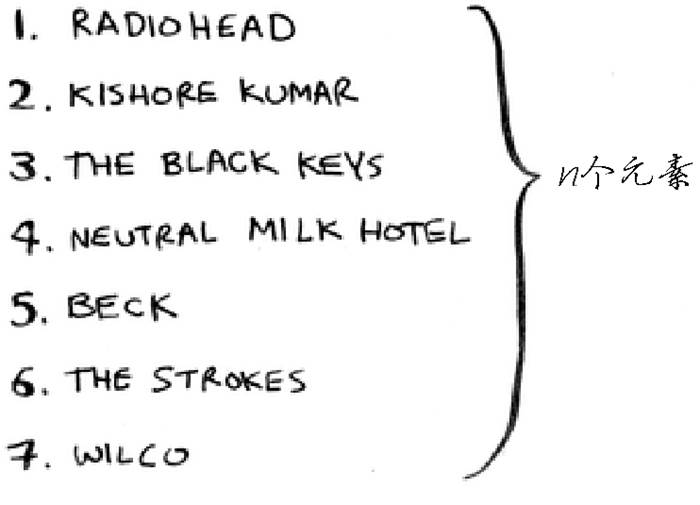 1. RADIOHEAD
2. KISHORE KUMAR
3. THE BLACK KEYS
4. NEUTRAL MILK HOTEL
5. BECK
6. THE STROKES
7. WILCO
n个元素